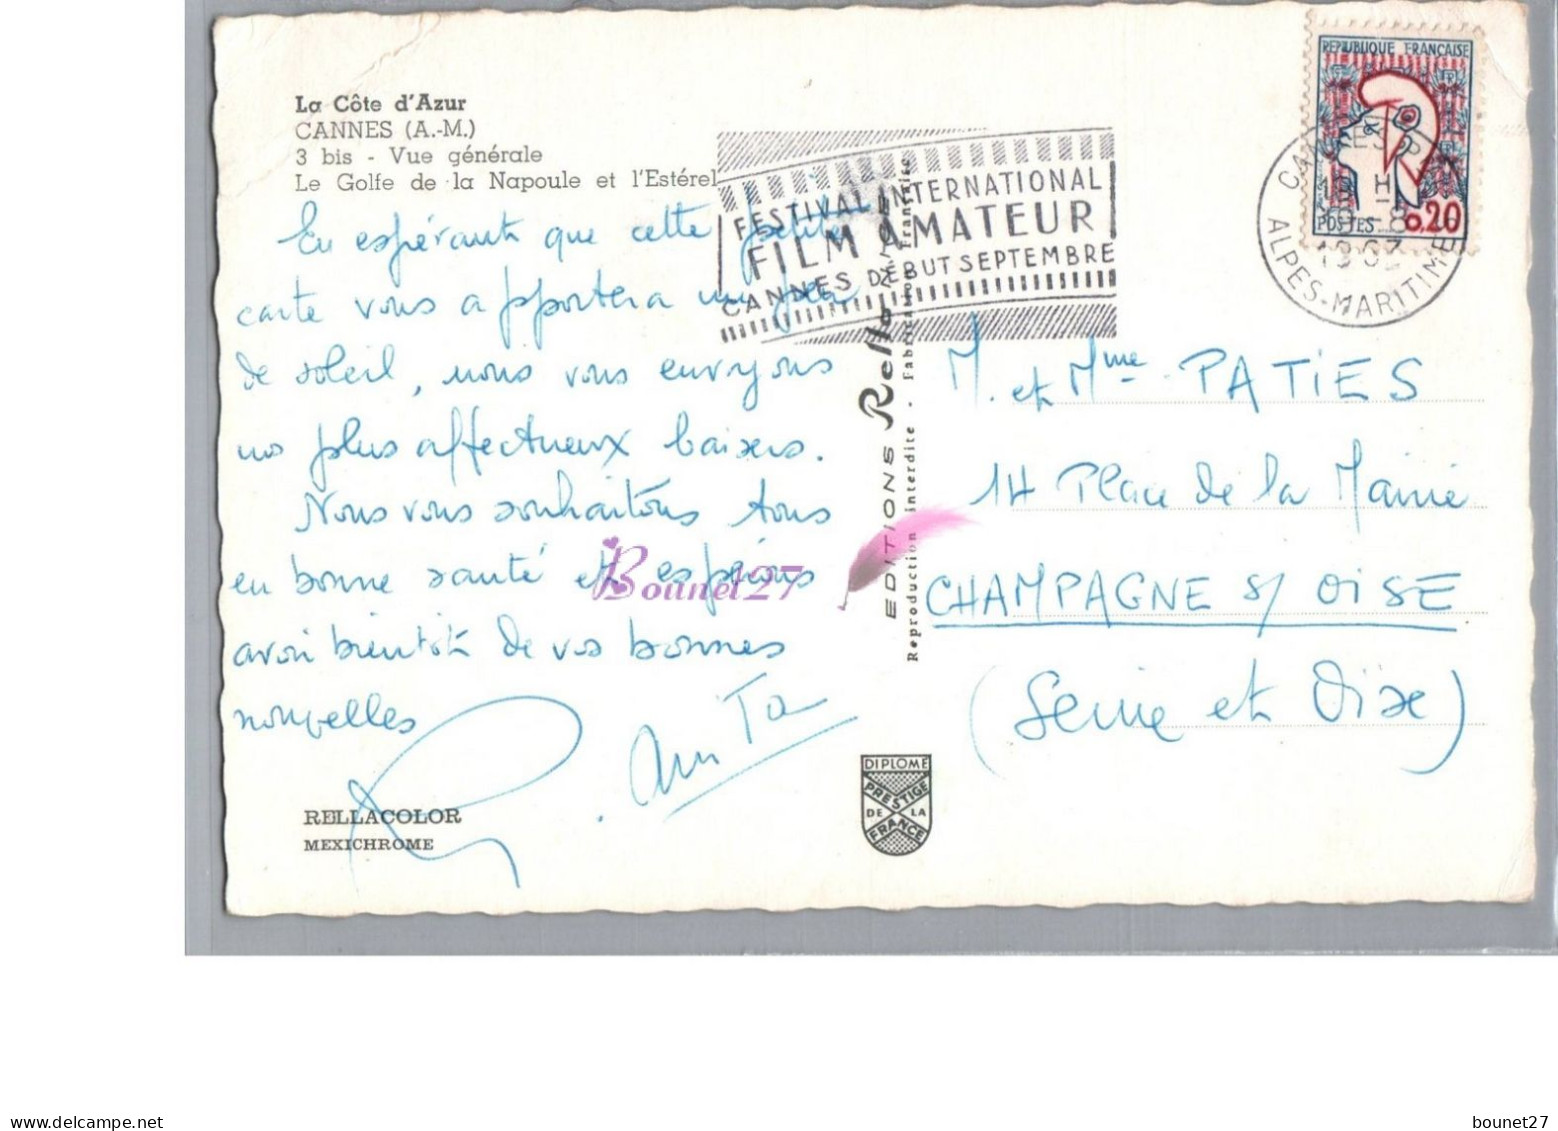 La Côte d'Azur
CANNES (A.-M.)
3 bis - Vue générale
Le Golfe de la Napoule et l'Estérel
En espérant que cette petite
carte vous apportera un peu
de soleil, nous vous envoyons
nos plus affectueux baisers.
Nous vous souhaitons tous
en bonne santé et espérons
avoir bientôt de vos bonnes
nouvelles
RELLACOLOR
MEXICHROME
FESTIVAL INTERNATIONAL
FILM AMATEUR
CANNES DÉBUT SEPTEMBRE
EDITIONS Rella
Reproduction interdite - Fabrication Française
DIPLOME
PRESTIGE
DE LA
FRANCE
REPUBLIQUE FRANÇAISE
POSTES 0,20
CANNES
1963
ALPES-MARITIMES
M. et Mme PATIES
14 Place de la Mairie
CHAMPAGNE S/ OISE
(Seine et Oise)
Bounet27
delcampe.net
bounet27